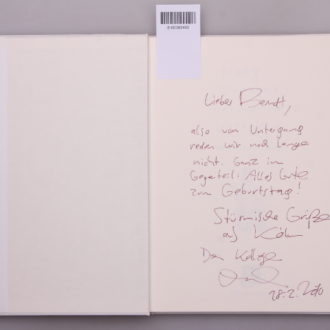 Lieber Berndt,
also von Untergang
reden wir noch lange
nicht. Ganz im
Gegenteil: Alles Gute
zum Geburtstag!
Stürmische Grüße
aus Köln
Dein Kollege
28.2.2010